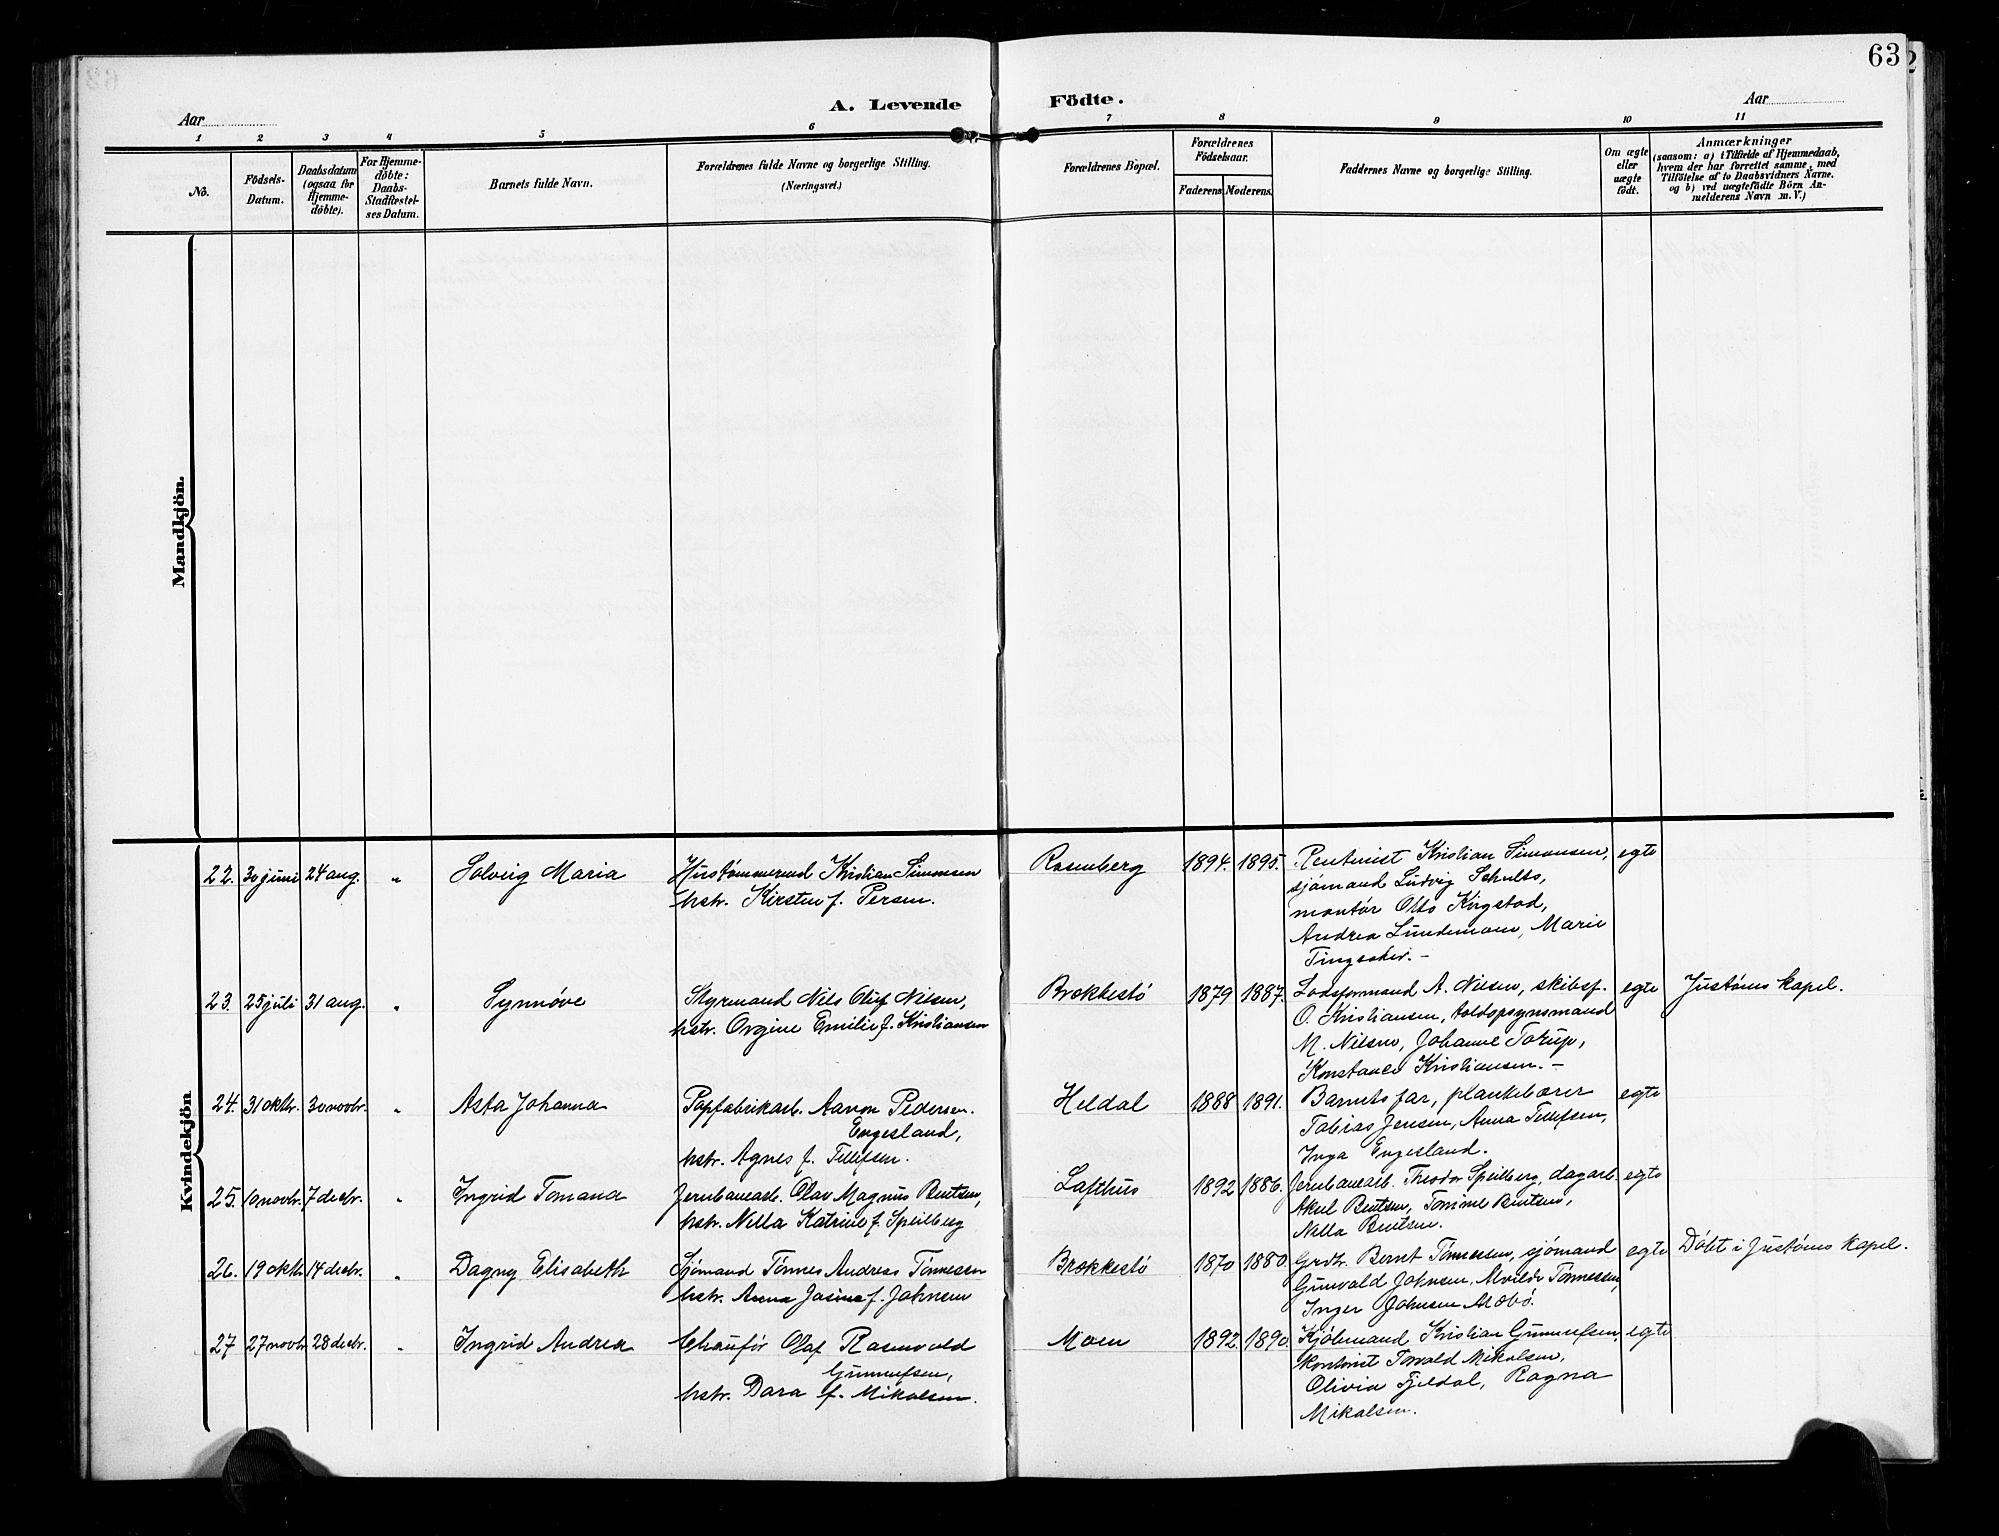 63
A. Levende Födte.
Aar
Aar
1 2 3 4 5 6 7 8 9 10 11
No.
Födsels-Datum.
Daabsdatum (ogsaa for Hjemmedöbte).
For Hjemmedöbte: Daabs-Stadfestelses Datum.
Barnets fulde Navn.
Forældrenes fulde Navne og borgerlige Stilling. (Næringsvei.)
Forældrenes Bopæl.
Forældrenes Födselsaar.
Faderens. Moderens.
Faddernes Navne og borgerlige Stilling.
Om ægte eller uægte födt.
Anmærkninger
(saasom: a) i Tilfælde af Hjemmedaab,
hvem der har forrettet samme, med
Tilföielse af to Daabsvidners Navne.
og b) ved uægtefödte Börn An-
melderens Navn m. V.)
Mandkjön.
Kvindekjön
22. 30 juni 24 aug. " Solveig Maria
Hustømmermand Kristian Simonsen
hstr. Kirsten f. Persen.
Rosenberg 1894. 1895.
Rentenist Kristian Simonsen, egte
sjømand Ludvig Schults,
montør Otto Kirgstad,
Andrea Lundemoen, Marie
Tingsaker. –
23. 25 juli 31 aug. " Synnøve
Styrmand Nils Oluf Nilsen,
hstr. Orgine Emilie f. Kristiansen
Brekkestø 1879 1887.
Lodsformand A. Nilsen, skibsf. egte Justøens kapel.
O. Kristiansen, toldopsynsmand
M. Nilsen, Johanne Torup,
Konstance Kristiansen. –
24. 31 oktbr. 30 novbr. " Asta Johanna
Papfabrikarb. Aanon Pedersen
Engesland,
hstr. Agnes f. Tellefsen.
Heldal 1888 1891.
Barnets far, plankebærer egte
Tobias Jensen, Anna Tellefsen,
Inga Engesland.
25. 10 novbr. 7 decbr. " Ingrid Tomana
Jernbanearb. Olav Magnus Bentsen,
hstr. Nella Katrine f. Speilberg
Lofthus 1892 1886.
Jernbanearb. Theodor Speilberg, dagarb. egte
Aksel Bentsen, Tomine Bentsen,
Nella Bentsen.
26. 19 oktbr. 14 decbr. " Dagny Elisabeth
Sjømand Tønnes Andreas Tønnessen
hstr. Anna Josine f. Johnsen
Brekkestø 1870 1880.
Grdbr. Bernt Tønnessen, sjømand egte Døbt i Justøens kapel.
Gunvald Johnsen, Alvilde Tønnessen,
Inger Johnsen Aabø.
27 27 novbr 28 decbr. " Ingrid Andrea
Chauffør Olaf Rosenvold
Gunnufsen,
hstr. Dora f. Mikalsen.
Moen 1892. 1890.
Kjøbmand Kristian Gunnufsen, egte
kontorist Torvald Mikalsen,
Olivia Fjeldal, Ragna
Mikalsen.